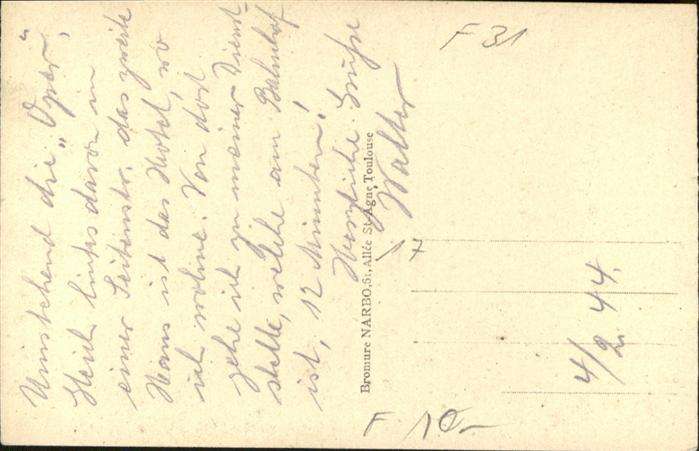 Umstehend die „Oper",
gleich links davon in
einer Seitenstr. das zweite
Haus ist das Hotel, wo
ich wohne. Von dort
gehe ich zu meiner Dienst-
stelle, welche am Bahnhof
ist, 12 Minuten!
Herzliche Grüße
Walter
Bromure NARBO, 51, Allée St-Agne, Toulouse
17
4/2. 44.
F 31
F 10.-